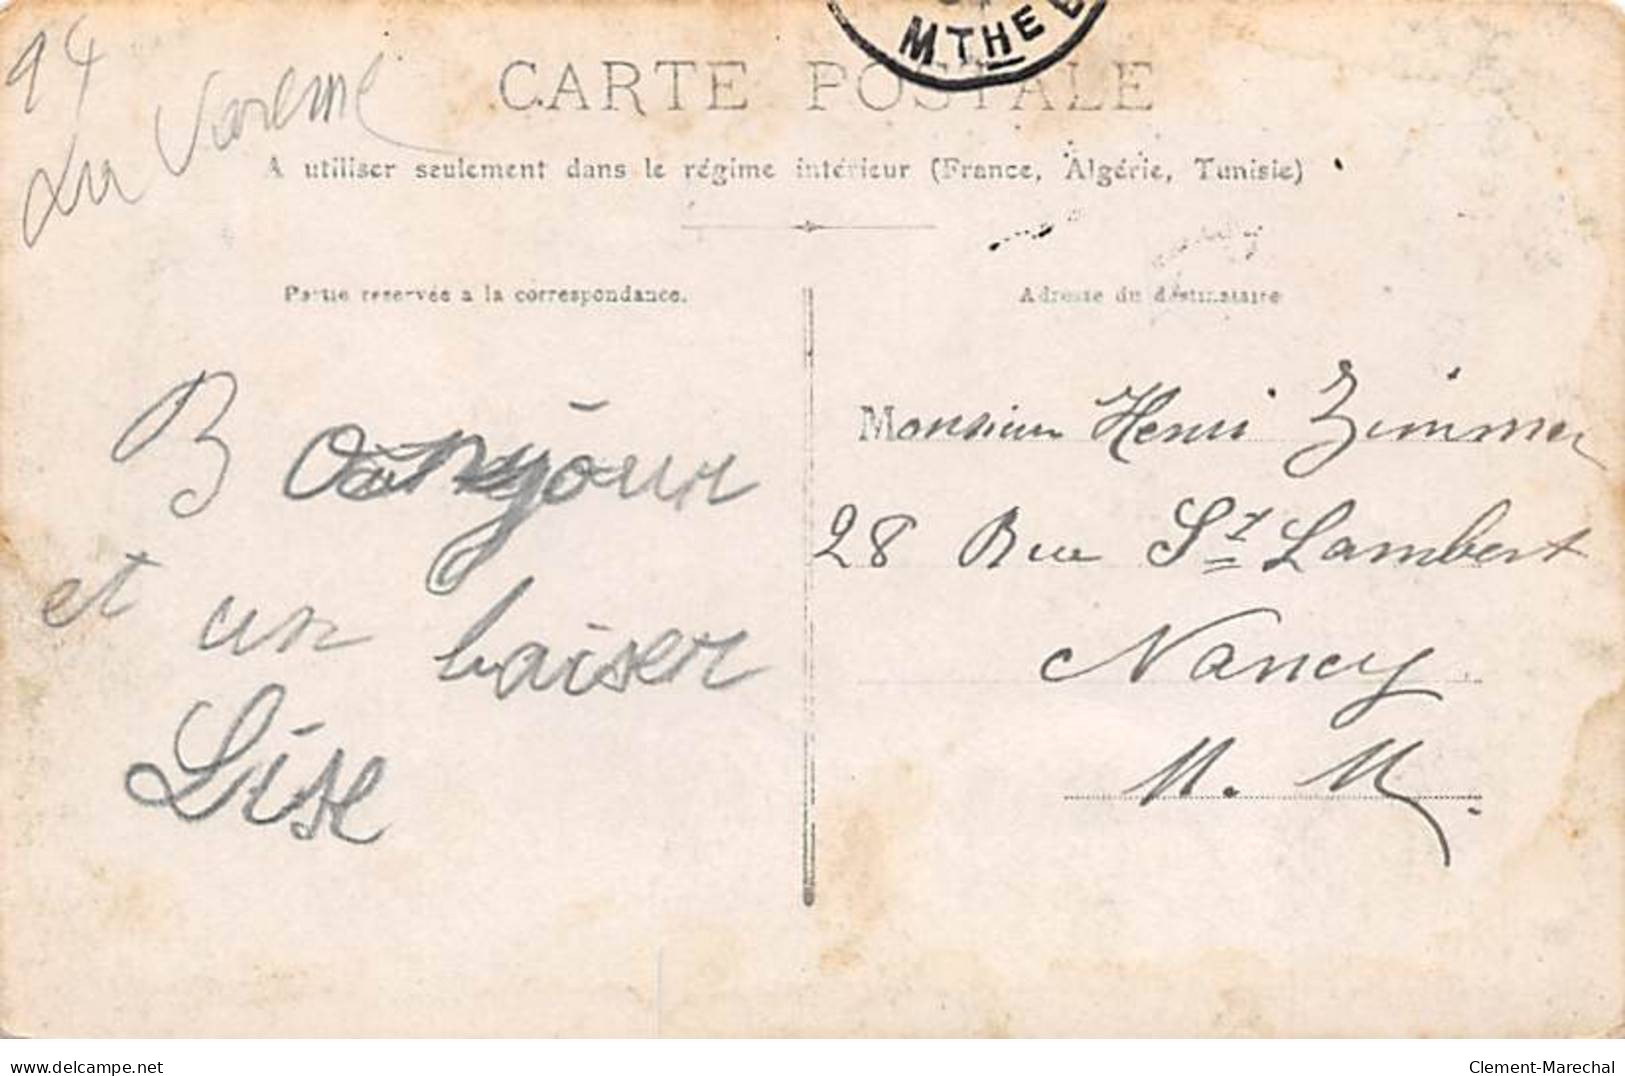 94
La Varenne
MTHE
CARTE POSTALE
A utiliser seulement dans le régime intérieur (France, Algérie, Tunisie)
Partie réservée a la correspondance.
Adresse du destinataire
Bonjour
et un baiser
Lise
Monsieur Henri Zimmer
28 Rue St Lambert
Nancy
M. M.
delcampe.net
Clement-Marechal